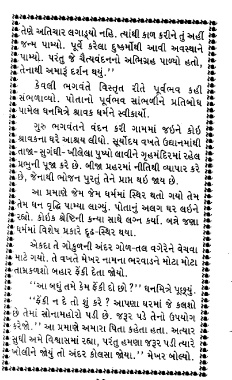 તેણે અતિચાર લગાડ્યો નહિ. ત્યાંથી કાળ કરીને તું અહીં
જન્મ પામ્યો. પૂર્વે કરેલા દુષ્કર્મોથી આવી અવસ્થાને
પામ્યો. પરંતુ જે ચૈત્યવંદનનો અભિગ્રહ પાળ્યો હતો,
તેનાથી અમારૂં દર્શન થયું.''
કેવલી ભગવંતે વિસ્તૃત રીતે પૂર્વભવ કહી
સંભળાવ્યો. પોતાનો પૂર્વભવ સાંભળીને પ્રતિબોધ
પામેલ ધનમિત્રે શ્રાવક ધર્મને સ્વીકાર્યો.
ગુરુ ભગવંતને વંદન કરી ગામમાં જઇને કોઇ
શ્રાવકના ઘરે આશ્રય લીધો. સૂર્યોદય વખતે ઉદ્યાનમાંથી
તાજા-સુગંધી-ખીલેલા પુષ્પો લાવીને ગૃહમંદિરમાં રહેલ
પ્રભુની પૂજા કરે છે. બીજા પ્રહરમાં નીતિથી વ્યાપાર કરે
છે, જેનાથી ભોજન પુરતું તેને પ્રાપ્ત થઇ જાય છે.
આ પ્રમાણે જેમ જેમ ધર્મમાં સ્થિર થતો ગયો તેમ
તેમ ધન વૃદ્ધિ પામ્યા લાગ્યું. પોતાનું અલગ ઘર લઇને
રહ્યો. કોઇક શ્રેષ્ઠિની કન્યા સાથે લગ્ન કર્યા. બન્ને જણા
ધર્મમાં વિશેષ પ્રકારે દૃઢ-સ્થિર થયા.
એકદા તે ગોકુળની અંદર ગોળ-તલ વગેરેને વેચવા
માટે ગયો. તે વખતે મેખર નામના ભરવાડને મોટા મોટા
તામ્રકળશો બહાર ફેંકી દેતા જોયો.
''આ બધું તમે કેમ ફેંકી દો છો ?'' ધનમિત્રે પૂછ્યું.
''ફેંકી ન દે તો શું કરે ? આપણા ઘરમાં જે કલશો
છે તેમાં સોનામહોરો પડી છે. જરૂર પડે તેનો ઉપયોગ
કરજો.'' આ પ્રમાણે અમારા પિતા કહેતા હતા. અત્યાર
સુધી અમે વિશ્વાસમાં રહ્યા, પરંતુ હમણા જરૂર પડી ત્યારે
ખોલીને જોયું તો અંદર કોલસા જોયા.'' મેખર બોલ્યો.